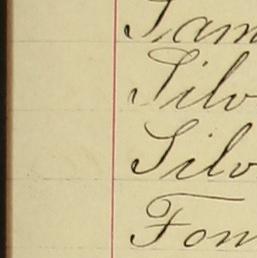 Sam
Silv
Silv
Fon